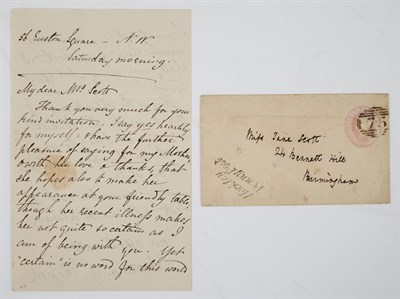 56 Euston Square - N.W.
Saturday morning.
My dear Mrs. Scott
Thank you very much for your
kind invitation. I say yes heartily
for myself & have the further
pleasure of saying for my Mother,
with her love & thanks, that
she hopes also to make her
appearance at your friendly table,
though her recent illness makes
her not quite so certain as I
am of being with you. Yet
"certain" is no word for this world
Miss Jane Scott
24 Bennett Hill
Birmingham